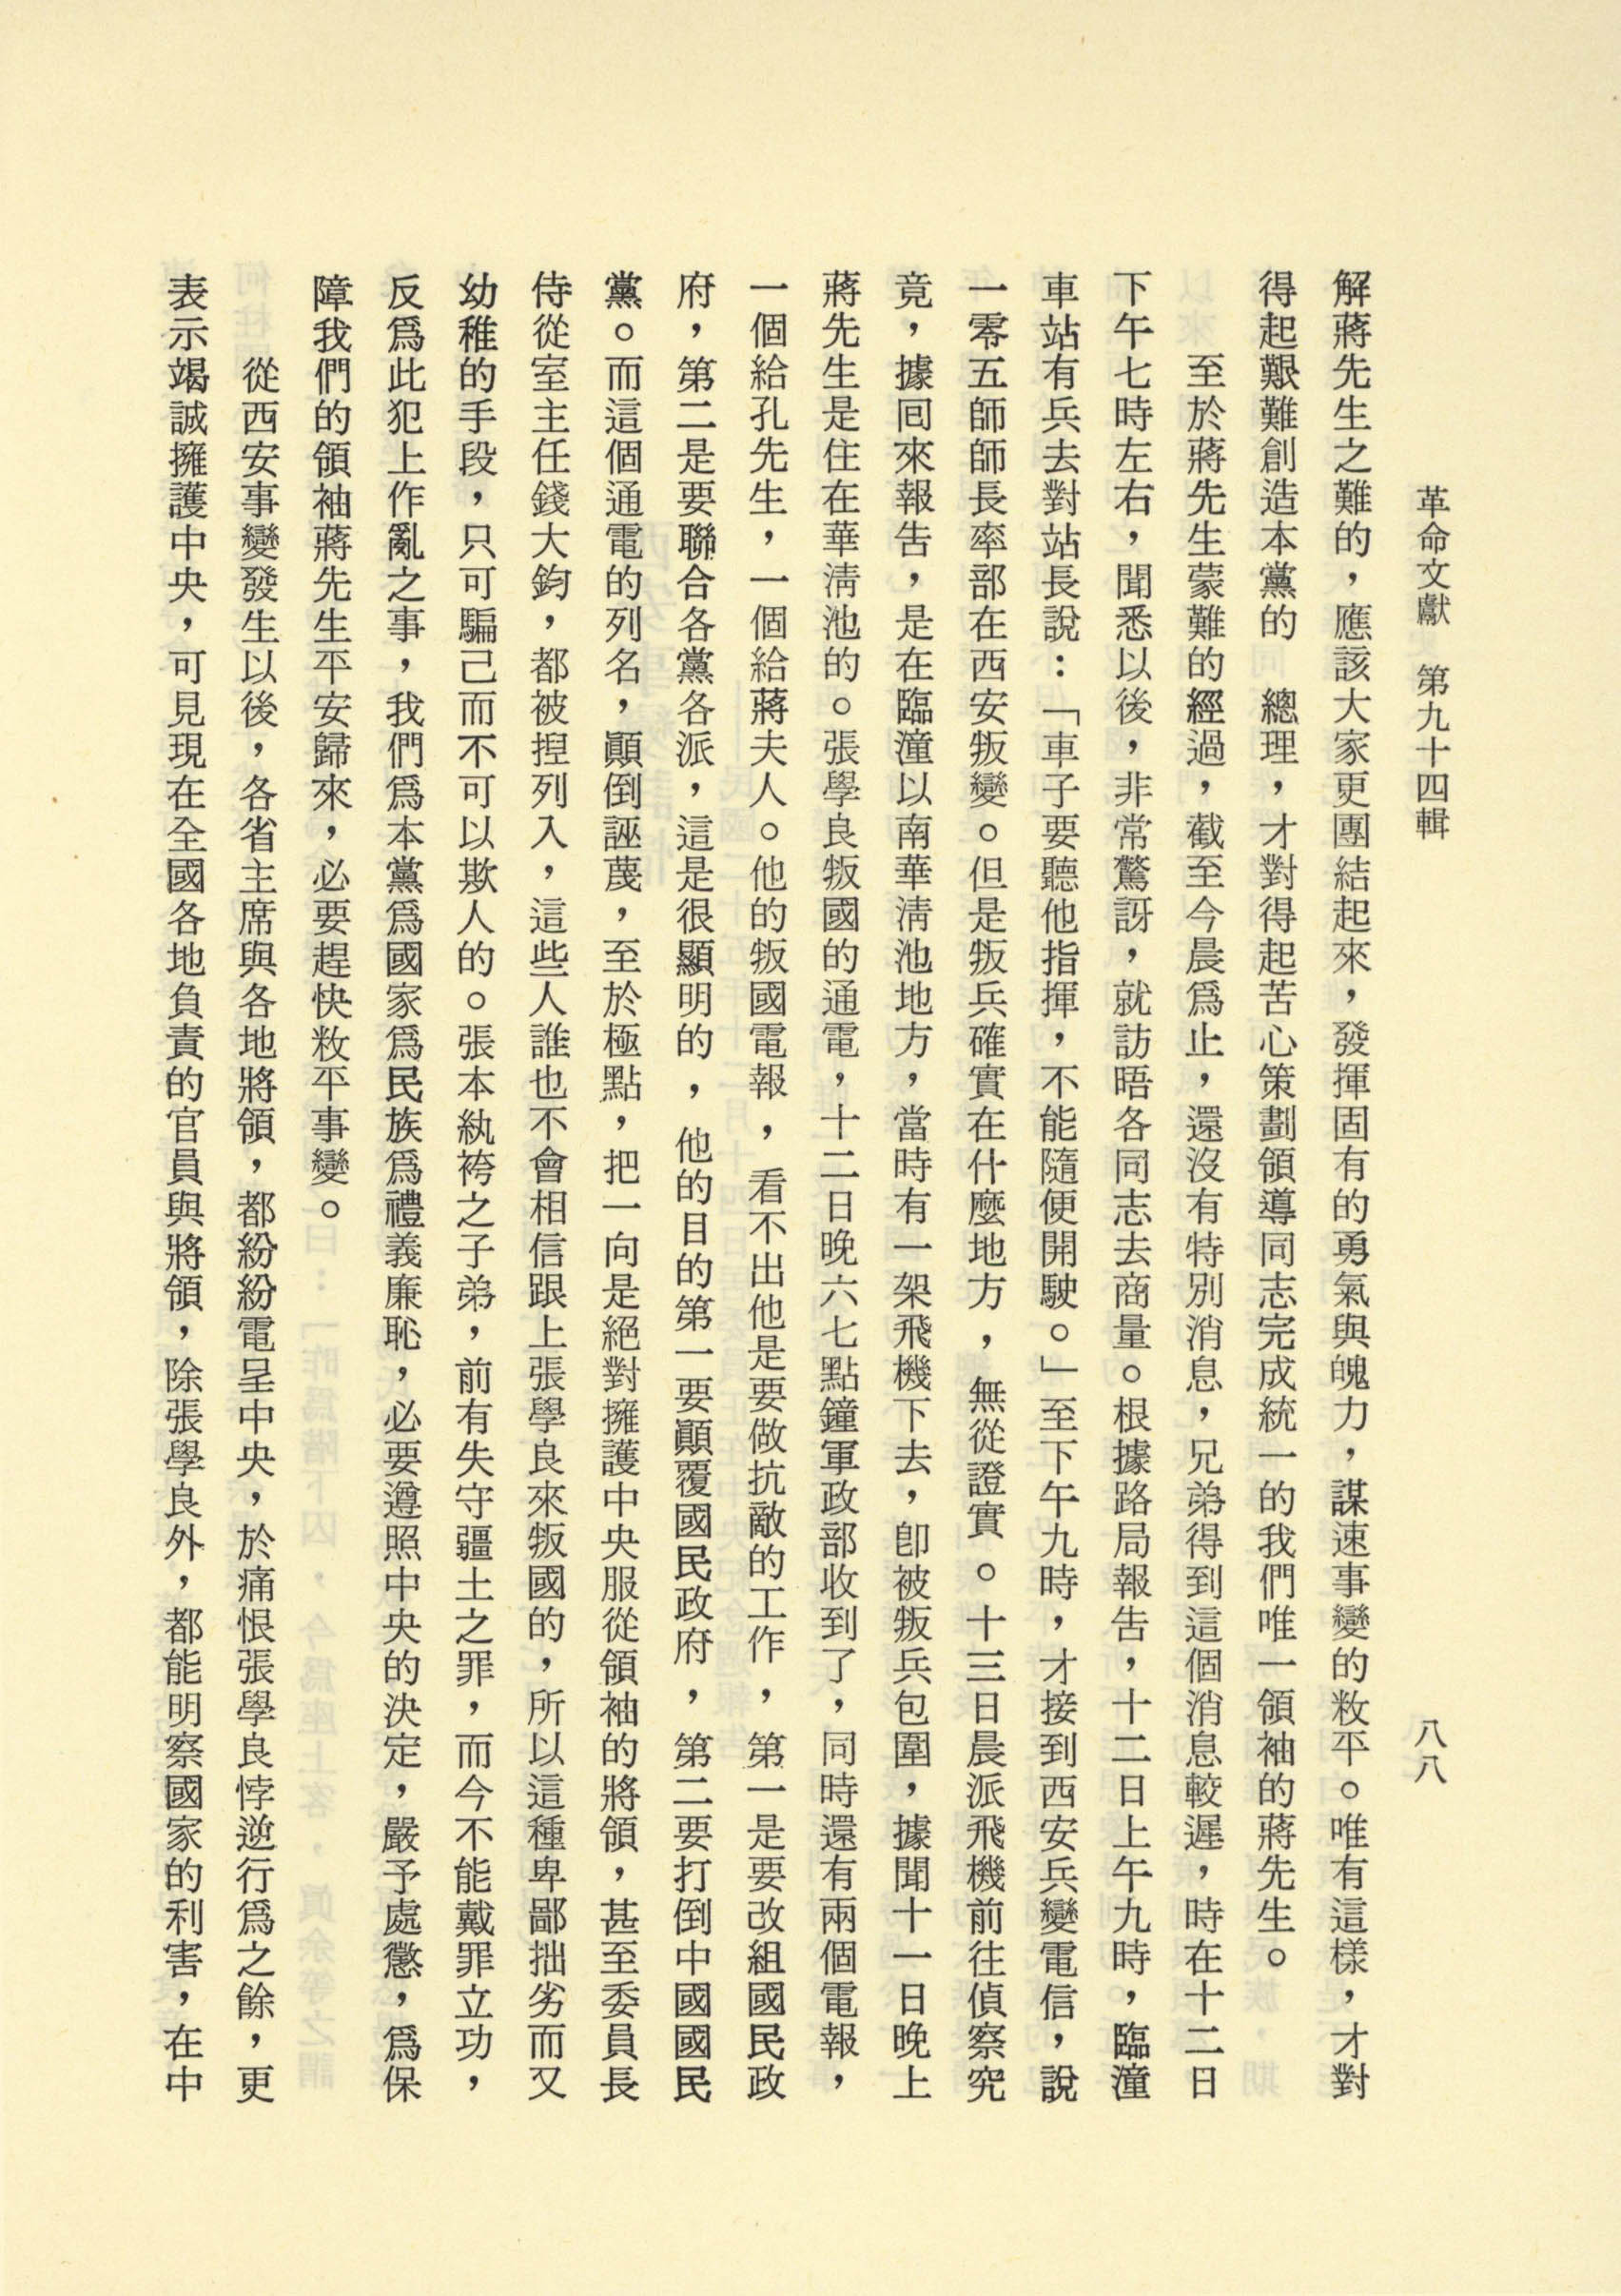 革命文獻　第九十四輯
八八
解蔣先生之難的，應該大家更團結起來，發揮固有的勇氣與魄力，謀速事變的敉平。唯有這樣，才對
得起艱難創造本黨的　總理，才對得起苦心策劃領導同志完成統一的我們唯一領袖的蔣先生。
至於蔣先生蒙難的經過，截至今晨爲止，還沒有特別消息，兄弟得到這個消息較遲，時在十二日
下午七時左右，聞悉以後，非常驚訝，就訪晤各同志去商量。根據路局報告，十二日上午九時，臨潼
車站有兵去對站長說：「車子要聽他指揮，不能隨便開駛。」至下午九時，才接到西安兵變電信，說
一零五師師長率部在西安叛變。但是叛兵確實在什麼地方，無從證實。十三日晨派飛機前往偵察究
竟，據回來報告，是在臨潼以南華淸池地方，當時有一架飛機下去，卽被叛兵包圍，據聞十一日晚上
蔣先生是住在華淸池的。張學良叛國的通電，十二日晚六七點鐘軍政部收到了，同時還有兩個電報，
一個給孔先生，一個給蔣夫人。他的叛國電報，看不出他是要做抗敵的工作，第一是要改組國民政
府，第二是要聯合各黨各派，這是很顯明的，他的目的第一要顚覆國民政府，第二要打倒中國國民
黨。而這個通電的列名，顚倒誣蔑，至於極點，把一向是絕對擁護中央服從領袖的將領，甚至委員長
侍從室主任錢大鈞，都被揑列入，這些人誰也不會相信跟上張學良來叛國的，所以這種卑鄙拙劣而又
幼稚的手段，只可騙己而不可以欺人的。張本紈袴之子弟，前有失守疆土之罪，而今不能戴罪立功，
反爲此犯上作亂之事，我們爲本黨爲國家爲民族爲禮義廉恥，必要遵照中央的決定，嚴予處懲，爲保
障我們的領袖蔣先生平安歸來，必要趕快敉平事變。
從西安事變發生以後，各省主席與各地將領，都紛紛電呈中央，於痛恨張學良悖逆行爲之餘，更
表示竭誠擁護中央，可見現在全國各地負責的官員與將領，除張學良外，都能明察國家的利害，在中